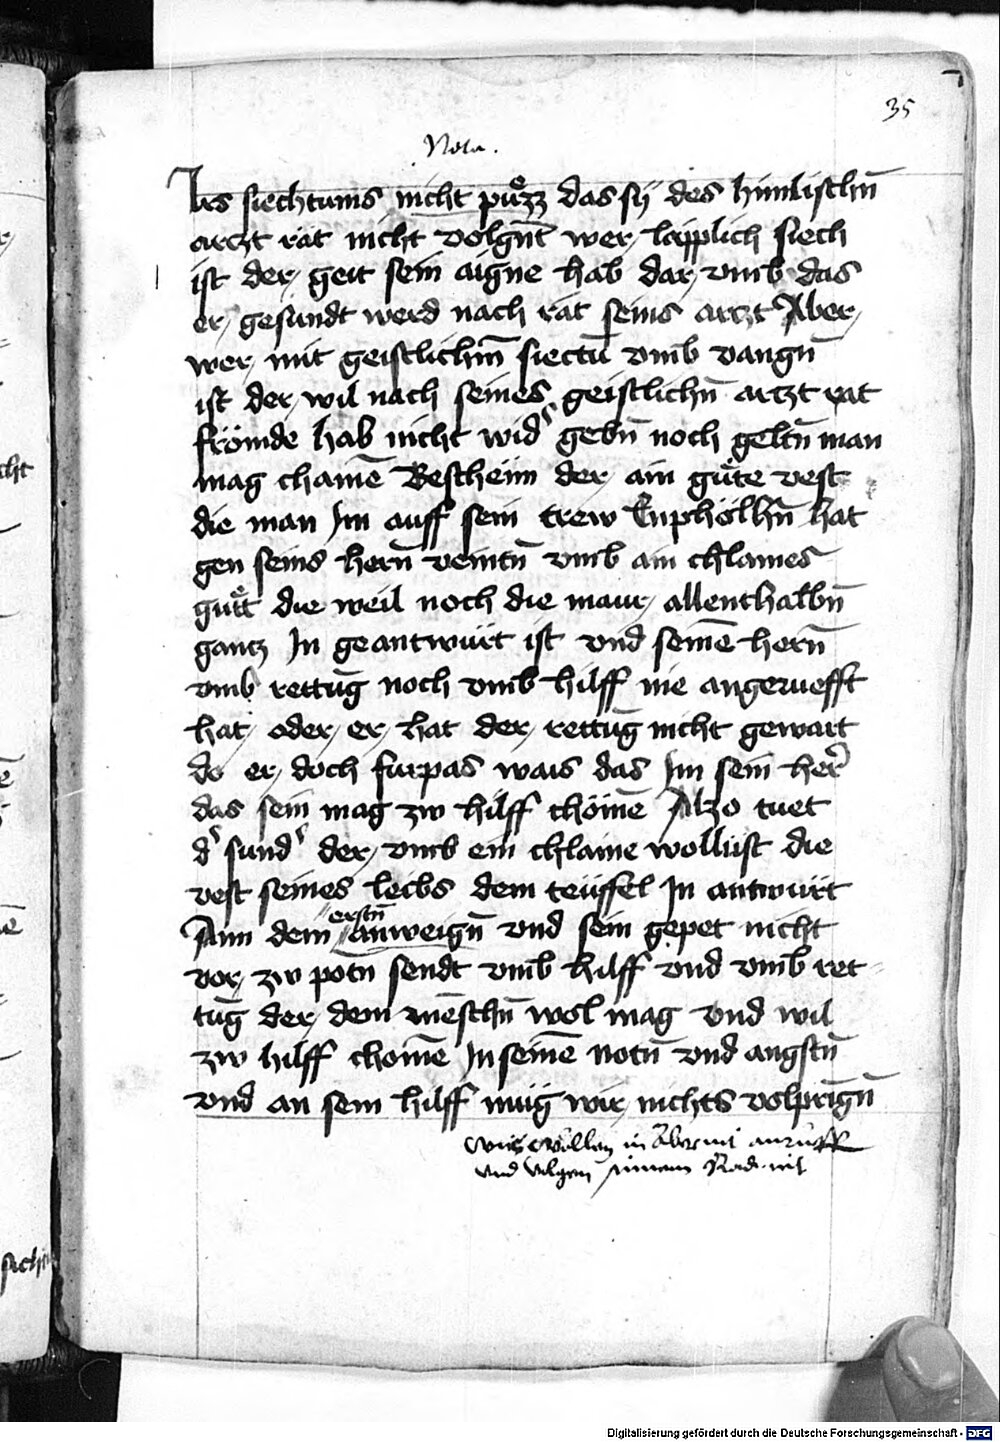 35
Nota.
Irs siechtums nicht půzz das sy des himlischn̄
arczt rat nicht volgn̄t wer läpplich siech
ist der geit sein aigne hab dar vmb das
er gesundt werd nach rat seins arczt Aber
wer mit geistlichm̄ siectū vmb vangn̄
ist der wil nach seines geistlichn̄ arczt rat
frömde hab nicht wid' gebn̄ noch geltn̄ man
mag chamē Bescheim der ain gůte vest
die man Im auff sein trew Enphölhn̄ hat
gen seins hern̄ veintn̄ vmb ain chlaines
gůtt die weil noch die maur allenthalbn̄
gantz In geantwürt ist vnd seinē hern̄
vmb rettūg noch vmb hilff nie angeruefft
hat oder er hat der rettūg nicht gewart
do er doch furpas wais das Im sein her'
das sein mag zw hilff chömē Alzo tuet
d' sund' der vmb ein chlaine wollust die
vest seines leibs dem teüffel In antwürt
Ann dem erstn̄ anweign̄ vnd sein gepet nicht
vor zw potn̄ sendt vmb hilff vnd vmb ret-
tūg der dem mēschn̄ wol mag vnd wil
zw hilff chomē In seinē notn̄ vnd angstn̄
vnd an sein hilff müg wir nichts volprīgn̄
wöllen in aber nit anruff
vnd volgen seinem Rad nit
sich
Digitalisierung gefördert durch die Deutsche Forschungsgemeinschaft - DFG